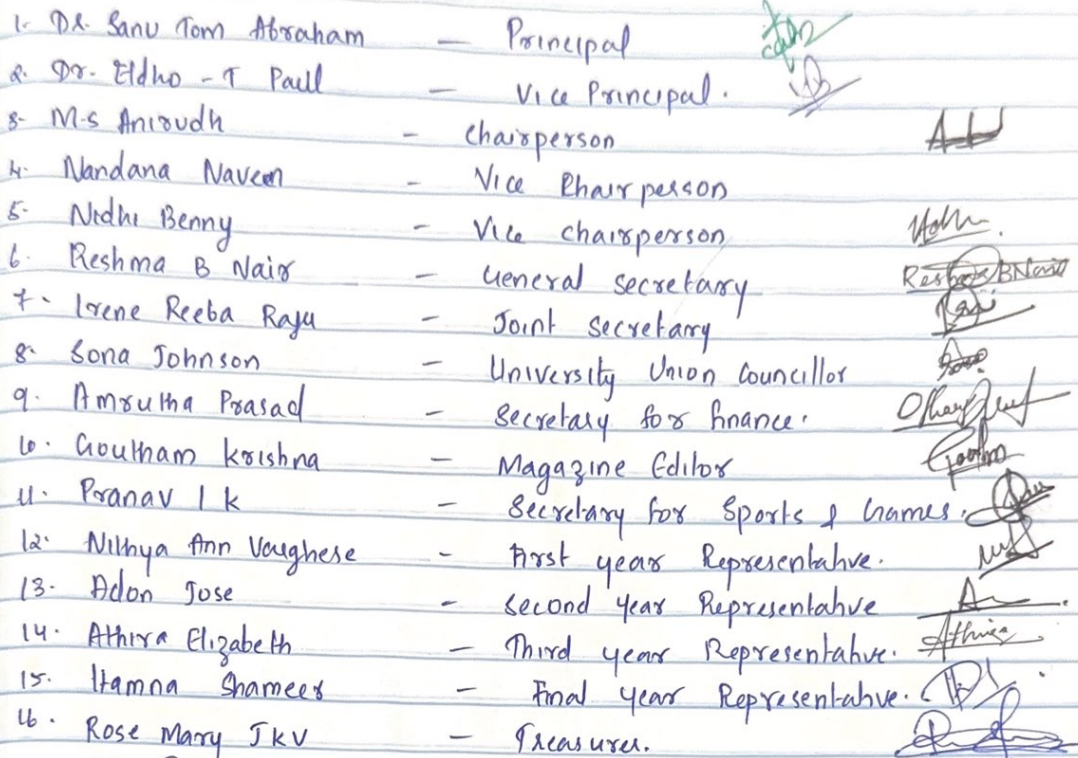 1. Dr. Sanu Tom Abraham – Principal
2. Dr. Eldho - T Paull – Vice Principal.
3- M.s Anirudh – Chairperson
4. Nandana Naveen – Vice Chairperson
5- Nidhi Benny – Vice chairperson
6. Reshma B Nair – General secretary Reshma B Nair
7. Irene Reeba Raju – Joint secretary
8. Sona Johnson – University Union Councillor
9. Amrutha Prasad – Secretary for finance.
10. Goutham Krishna – Magazine Editor
11. Pranav I K – Secretary for Sports & Games.
12. Nithya Ann Varghese – First year Representative.
13. Adon Jose – Second year Representative
14. Athira Elizabeth – Third year Representative. Athira
15. Hamna Shameer – Final year Representative.
16. Rose Mary JKV – Treasurer.